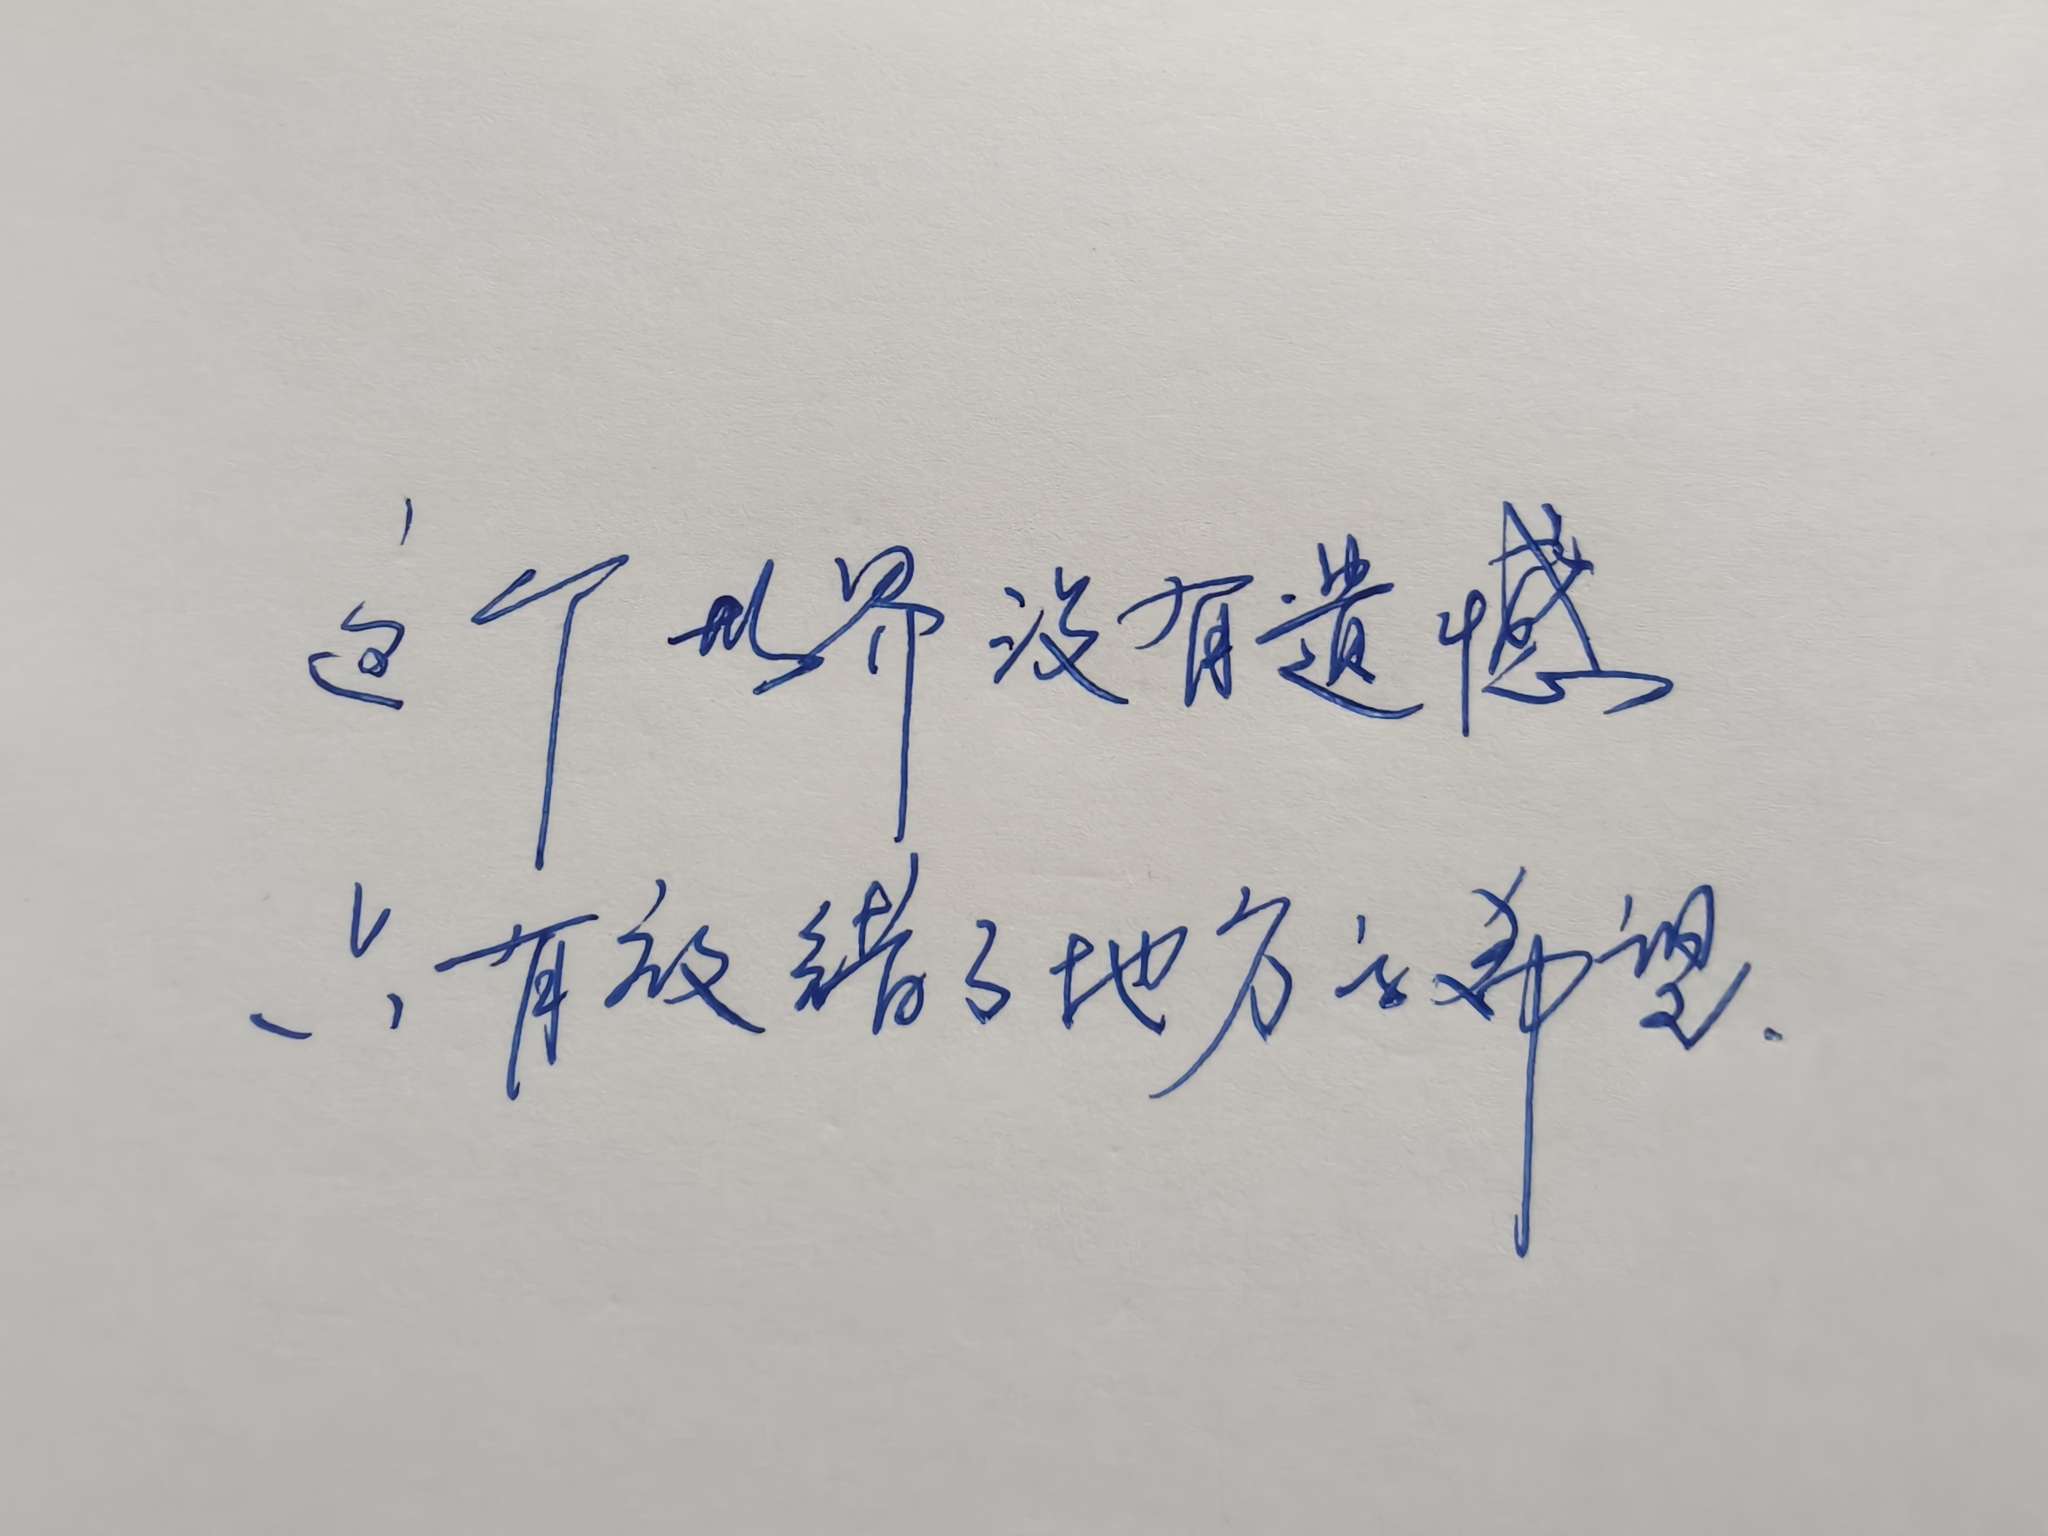 这个世界没有遗憾
只有放错了地方的希望.